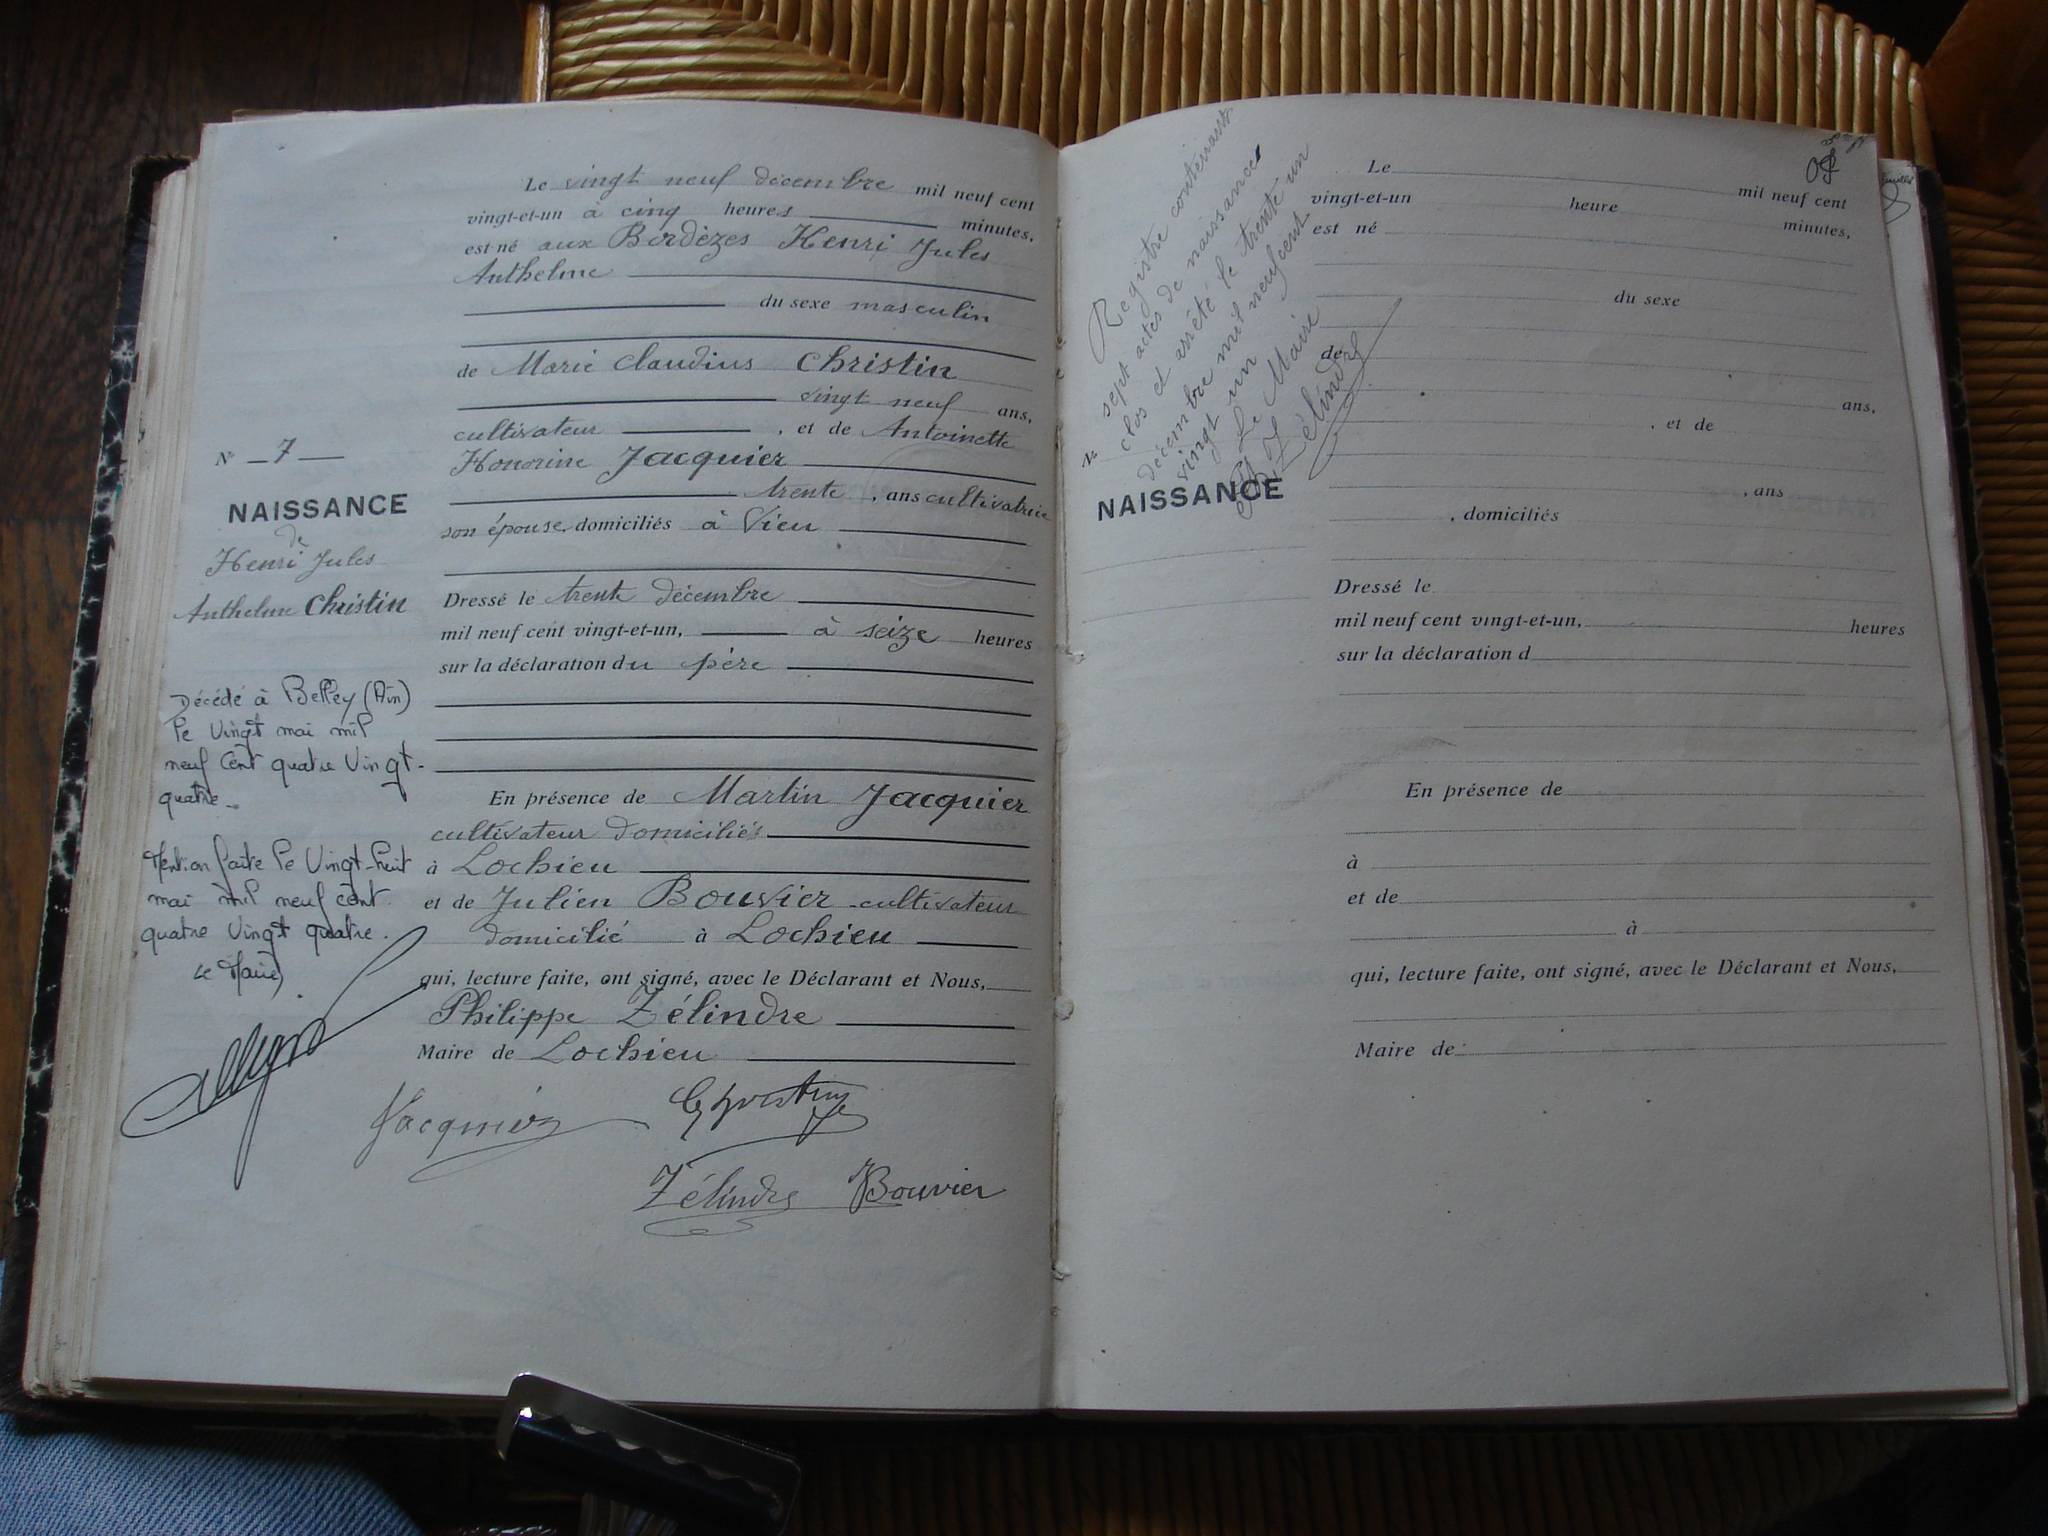 Le vingt neuf décembre mil neuf cent
vingt-et-un à cinq heures minutes,
est né aux Bordèzes Henri Jules
Anthelme
du sexe masculin
de Marie Claudius Christin
vingt neuf ans,
cultivateur , et de Antoinette
Honorine Jacquier
trente , ans cultivatrice
son épouse, domiciliés à Vieu
N° 7
NAISSANCE
de
Henri Jules
Anthelme Christin
Dressé le trente décembre
mil neuf cent vingt-et-un, à seize heures
sur la déclaration du père
Décédé à Belley (Ain)
le Vingt mai mil
neuf Cent quatre Vingt-
quatre.
Mention faite le Vingt-huit
mai mil neuf cent
quatre Vingt quatre.
Le Maire
En présence de Martin Jacquier
cultivateur domiciliés
à Lochieu
et de Julien Bouvier cultivateur
domicilié à Lochieu
qui, lecture faite, ont signé, avec le Déclarant et Nous,
Philippe Zélindre
Maire de Lochieu
Jacquier
Christin
Zélindre Bouvier
Registre contenant
sept actes de naissances
clos et arrêté le trente un
décembre mil neuf cent
vingt un
Le Maire
Zélindre
N°
NAISSANCE
Le mil neuf cent
vingt-et-un heure minutes,
est né
du sexe
de
ans,
, et de
, ans
, domiciliés
Dressé le
mil neuf cent vingt-et-un, heures
sur la déclaration d
En présence de
à
et de
à
qui, lecture faite, ont signé, avec le Déclarant et Nous,
Maire de